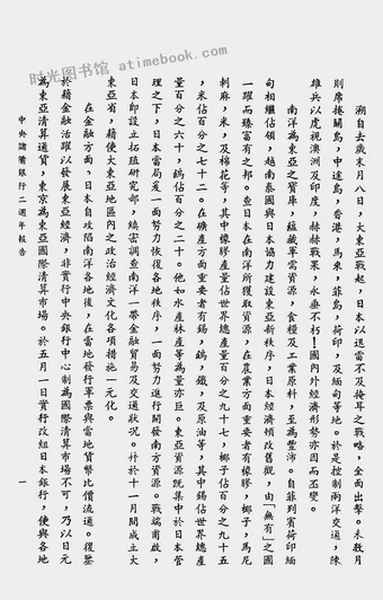 溯自去歲末月八日，大東亞戰起，日本以迅雷不及掩耳之戰略，全面出擊。未數月
則席捲關島，中途島，香港，馬來，菲島，荷印，及緬甸等地。於是控制兩洋交通，陳
雄兵以虎視澳洲及印度，赫赫戰果，永垂不朽！國內外經濟形勢亦因而丕變。
南洋為東亞之寶庫，蘊藏軍需資源，食糧及工業原料，至為豐沛。自菲列賓荷印緬
甸相繼佔領，越南泰國與日本協力建設東亞新秩序，日本經濟頓改舊觀，由「無有」之國
一躍而臻富有之邦。查日本在南洋所獲取資源，在農業方面重要者有橡膠，椰子，馬尼
剌麻，米，及棉花等，其中橡膠產量佔世界總產量百分之九十七，椰子佔百分之九十五
，米佔百分之七十二。在礦產方面重要者有錫，鎢，鐵，及原油等，其中錫佔世界總產
量百分之六十，鎢佔百分之二十。他如水產林產等為量亦巨。東亞資源既集中於日本管
理之下，日本當局爰一面努力恢復各地秩序，一面努力進行開發南方資源。戰端甫啟，
日本即設立拓殖研究部，縝密調查南洋一帶金融貿易及交通狀況。并於十一月間成立大
東亞省，藉使大東亞地區內之政治經濟文化各項措施一元化。
在金融方面，日本自攻陷南洋各地後，在當地發行軍票與當地貨幣比價流通。復鑒
於藉金融活躍以發展東亞經濟，非實行中央銀行中心制為國際清算市場不可，乃以日元
為東亞清算通貨，東京為東亞國際清算市場。於五月一日實行改組日本銀行，使與各地
中央儲備銀行二週年報告
一
时光图书馆 atimebook.com